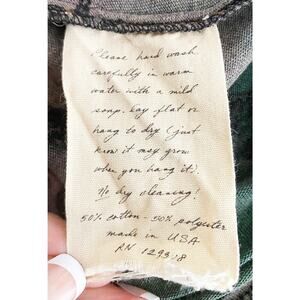 Please hand wash
carefully in warm
water with a mild
soap. Lay flat or
hang to dry (just
know it may grow
when you hang it).
No dry cleaning!
50% cotton - 50% polyester
made in USA
RN 129318